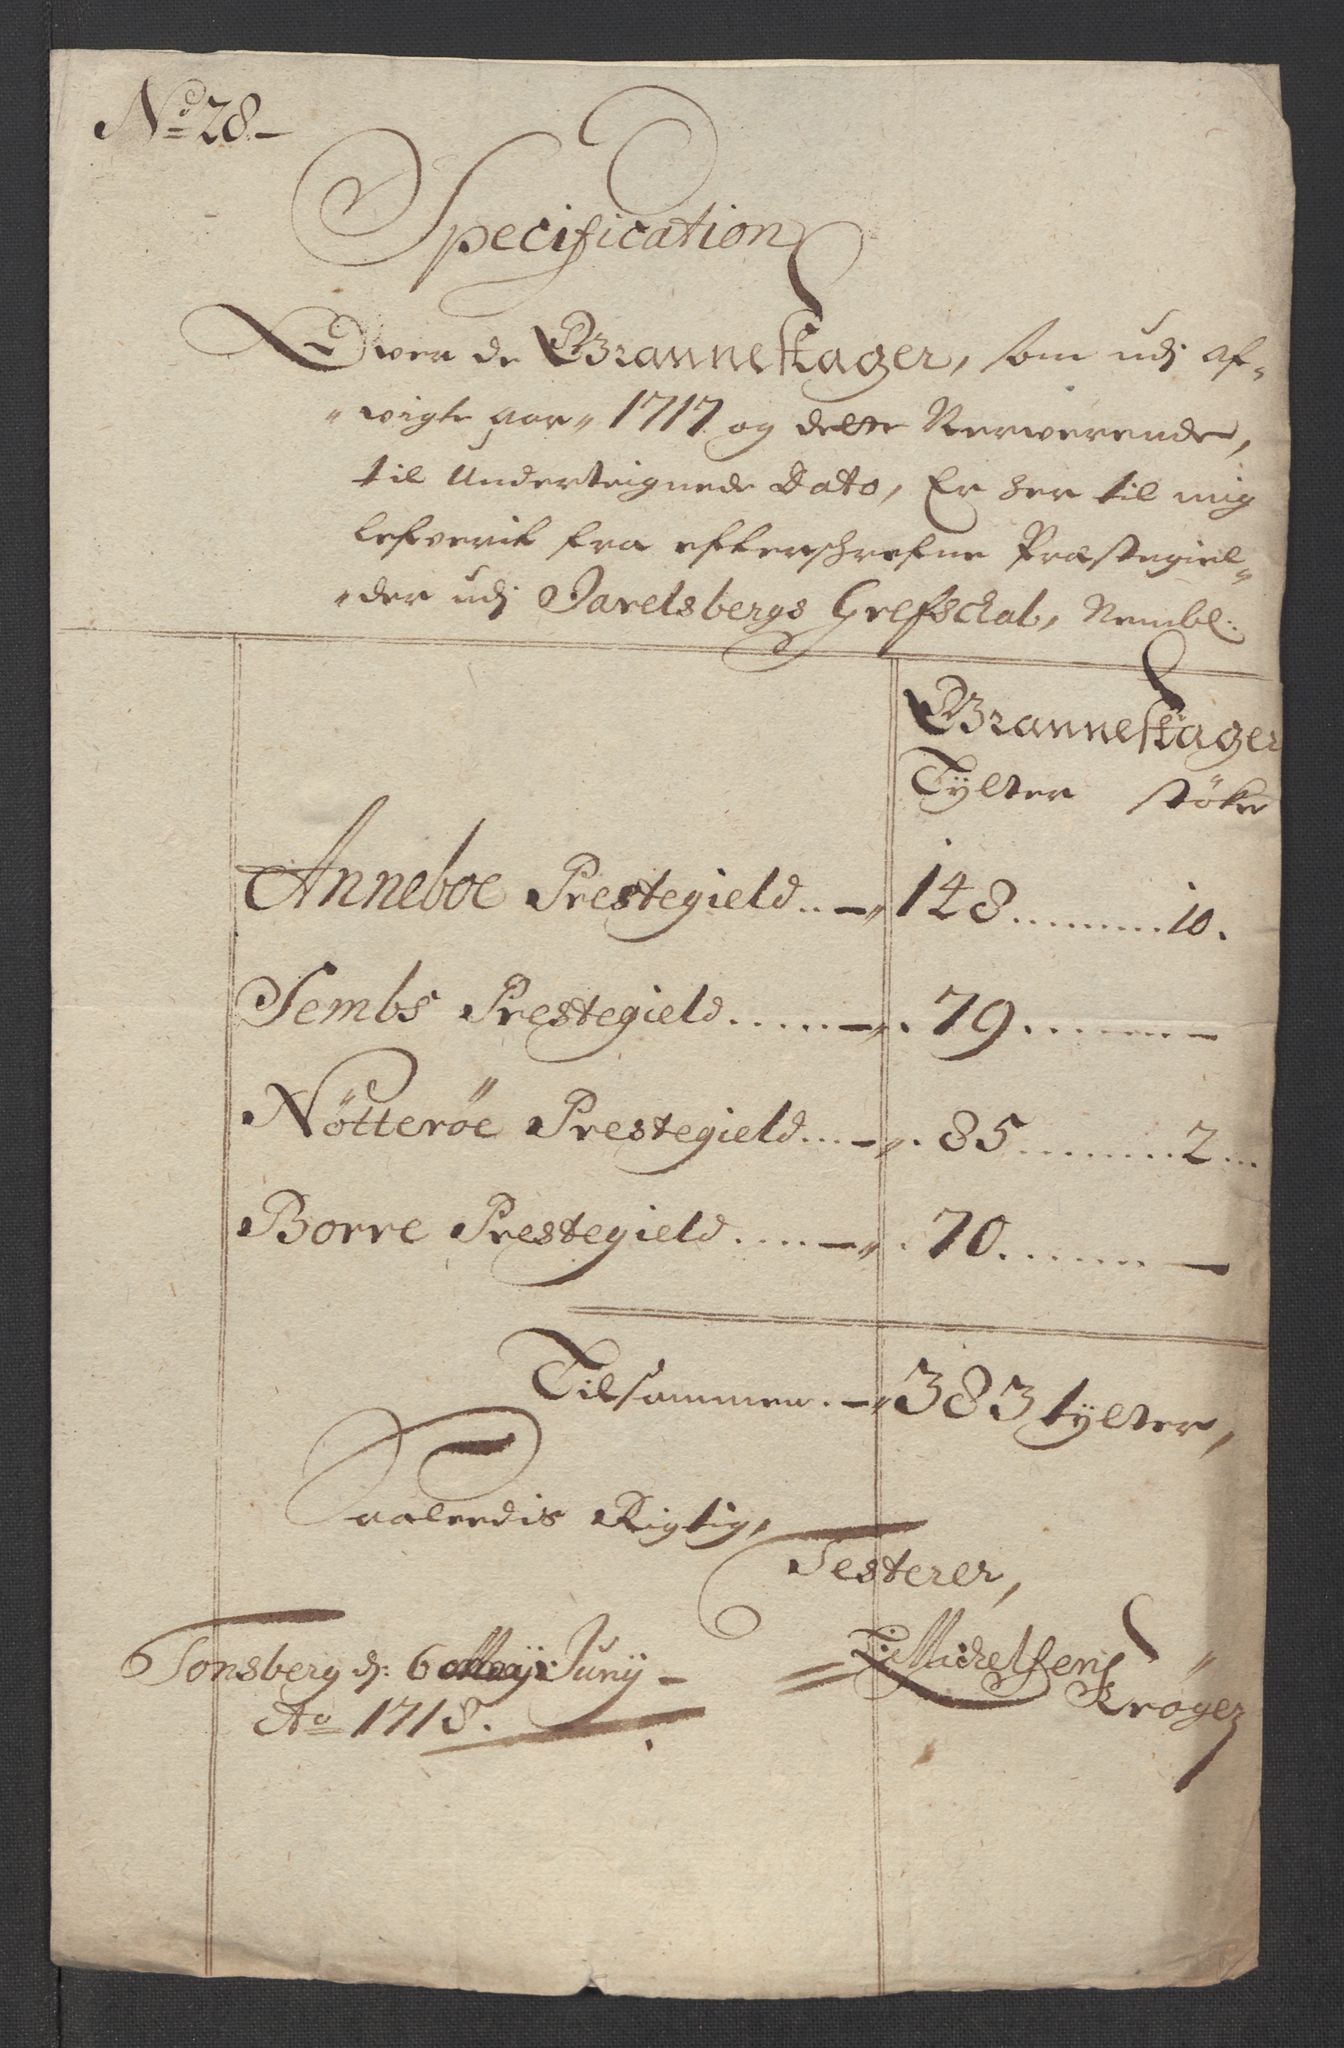 No 28
Specification
Ower de Granneskager, som udj af-
wigte aar 1717 og dette Nerwerende,
til Underteignede Dato, Er her til mig
lefverit fra efterschrefne Præstegiel-
der udj Jarelsbergs Grefschab, Nembl:
Granneskager
Tylter støker
Anneboe Prestegield 148 10.
Sembs Prestegield 79 -
Nötteröe Prestegield 85 2
Borre Prestegield 70 -
Tilsammen 383 tylter,
Saaledis Rigtig,
Testerer,
Tonsberg d: 6 Junij
Ao 1718.
Michelsen
Kröger